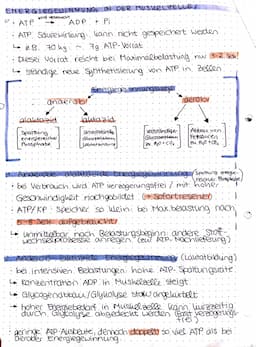 ENERGIEGEWINNUNG IN DER MUSKELZELLE
• ATP → ADP + Pi
• ATP Säurewirkung, kann nicht gespeichert werden
↳ z.B. 70 kg ~ 7g ATP-Vorrat
• Dieser Vorrat reicht bei Maximalbelastung nur 1-2 sek
↳ ständige neue Synthetisierung von ATP in Zellen
anaerob
aerob
alaktazid
laktazid
Spaltung energiereicher Phosphate
unvollständige
vollständige
zu H₂O + CO₂
zu H₂O + CO₂
Anaerobe alaktazide Energiegewinnung (Spaltung energiereicher Phosphate)
• bei Verbrauch wird ATP verzögerungsfrei / mit hoher
Geschwindigkeit nachgebildet → Sofortreserve
• ATP/KP - Speicher so klein: bei Max. belastung nach
5-8 Sek. aufgebraucht
↳ Unmittelbar nach Belastungsbeginn andere Stoff-
wechselprozesse anregen (zur ATP-Nachlieferung)
(Laktatbildung)
• bei intensiven Belastungen hohe ATP-Spaltungsrate
↳ Konzentration ADP in Muskelzelle steigt
↳ Glycogenabbau / Glykolyse stark angekurbelt
↳ hoher Energiebedarf in Muskelzelle kann kurzzeitig
durch Glykolyse abgedeckt werden (fast verzögungs-
frei)
• geringe ATP-Ausbeute, dennoch doppelt so viel ATP als bei
aerober Energiegewinnung